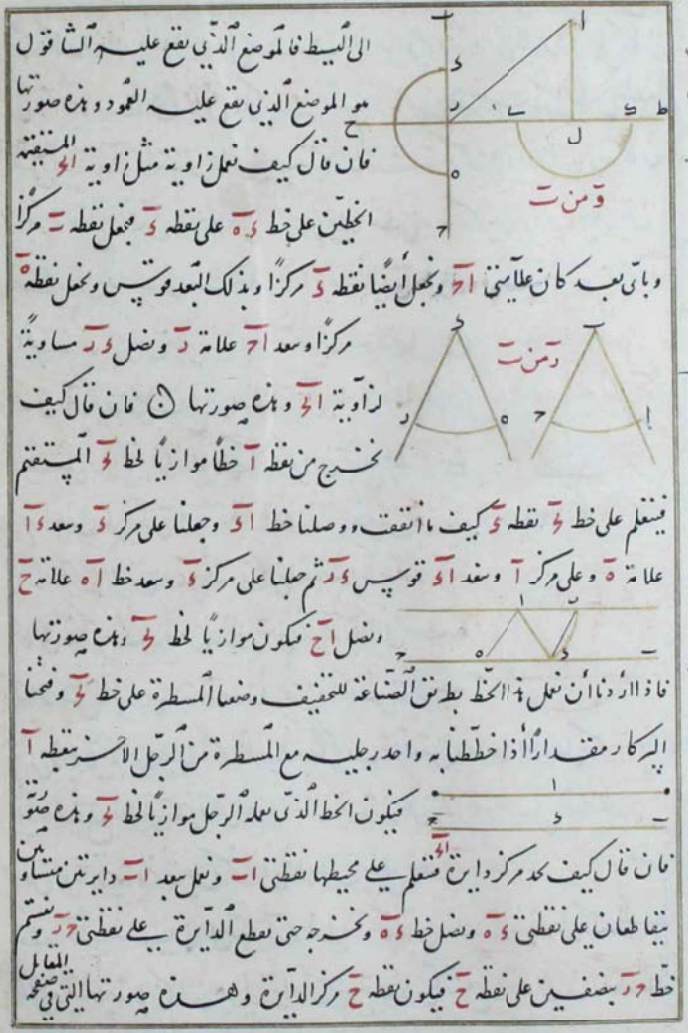 الى البسيط فالموضع الذي يقع عليه الشاقول
هو الموضع الذي يقع عليه العمود وهذه صورتها
فان قال كيف نعمل زاوية مثل زاوية المستقيمة
الخطين على خط ءه على نقطة ء فنجعل نقطة ب مركزا
وباى بعد كان علامتى اح ونجعل أيضا نقطه ء مركزا وبذلك البعد قوس ونجعل نقطة ه
مركزا وببعد اح علامة د ونصل ءد مساوية
لزاوية وهذه صورتها فان قال كيف
نخرج من نقطه آ خطا موازيا لخط المستقيم
فنتعلم على خط نقطه ء كيف ما اتفقت ووصلنا خط اء وجعلنا على مركز ء وببعد ءا
علامة ه وعلى مركز آ وببعد اء قوس ءد ثم جعلنا على مركز ء وببعد خط اه علامة ح
ونصل اح فيكون موازيا لخط وهذه صورتها
فاذا اردنا أن نعمل هذا الخط بطريق الصناعة للتخفيف وضعنا المسطرة على خط وفتحنا
البركار مقدارا اذا خططنا به واحد رجليه مع المسطرة مر الرجل الاخر بنقطه آ
فيكون الخط الذى تعمله الرجل موازيا لخط وهذه صورته
فان قال كيف نجد مركز دايرة فنتعلم على محيطها نقطتى اب ونعمل ببعد اب دايرتين متساويتين
يتقاطعان على نقطتى ءه ونصل خط ءه ونخرجه حتى يقطع الدايرة على نقطتى حد ونقسم
خط حد بنصفين على نقطه ح فيكون نقطه ح مركز الدايرة وهذه صورتها التي في صفحة المقابل